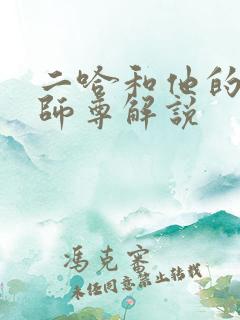 二哈和他的
師尊解説
馮克寒
未经同意禁止转载